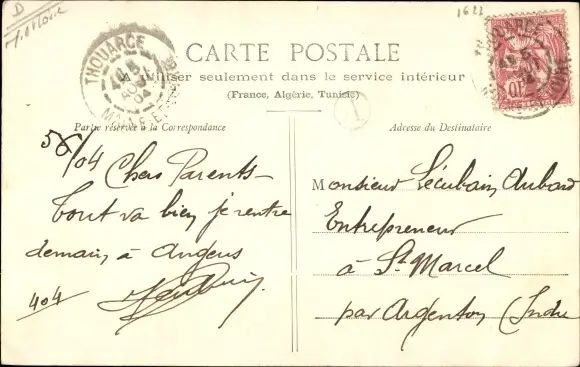 D
1622
THOUARCÉ
MAINE-ET-
CARTE POSTALE
A utiliser seulement dans le service intérieur
(France, Algérie, Tunisie)
Partie réservée à la Correspondance
Adresse du Destinataire
1
04 Chers Parents
Tout va bien je rentre
demain à Angers
404
Monsieur Aubard
Entrepreneur
à St Marcel
par Argenton (Indre